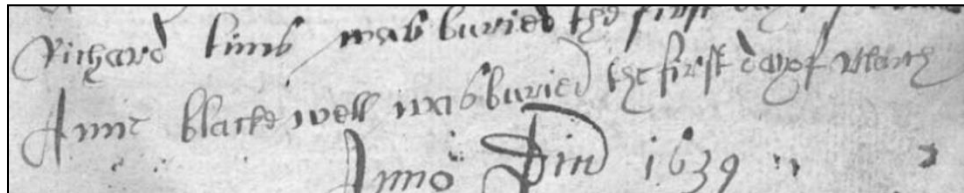 Richard Lins was buried the first day of
Anne blacke well was buried the first day of March
Anno Din 1639